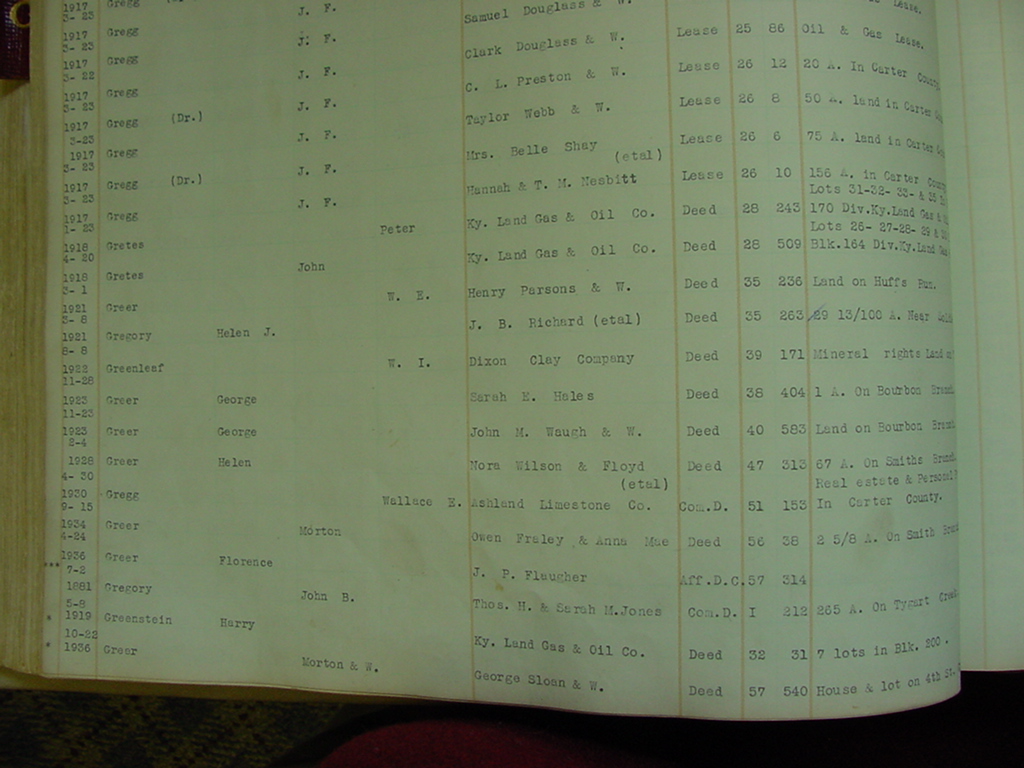 1917 Gregg J. F. Samuel Douglass & W. Lease.
3- 23
1917 Gregg J. F. Clark Douglass & W. Lease 25 86 Oil & Gas Lease.
3- 23
1917 Gregg J. F. C. L. Preston & W. Lease 26 12 20 A. In Carter
3- 22
1917 Gregg J. F. Taylor Webb & W. Lease 26 8 50 A. land in Carter
3- 23
1917 Gregg (Dr.) J. F. Mrs. Belle Shay (etal) Lease 26 6 75 A. land in Carter
3-23
1917 Gregg J. F. Hannah & T. M. Nesbitt Lease 26 10 156 A. in Carter
3- 23
Lots 31-32- 33- &
1917 Gregg (Dr.) J. F. Ky. Land Gas & Oil Co. Deed 28 243 170 Div.Ky.Land Gas &
3- 23
Lots 26- 27-28- 29 &
1917 Gregg Peter Ky. Land Gas & Oil Co. Deed 28 509 Blk.164 Div.Ky.Land
1- 23
1918 Gretes John Henry Parsons & W. Deed 35 236 Land on Huffs Run.
4- 20
1918 Gretes W. E. J. B. Richard (etal) Deed 35 263 29 13/100 A. Near
3- 1
1921 Greer
3- 8
1921 Gregory Helen J. W. I. Dixon Clay Company Deed 39 171 Mineral rights Land
8- 8
1922 Greenleaf Sarah E. Hales Deed 38 404 1 A. On Bourbon Branch
11-28
1923 Greer George John M. Waugh & W. Deed 40 583 Land on Bourbon
11-23
1923 Greer George Nora Wilson & Floyd (etal) Deed 47 313 67 A. On Smiths
2-4
Real estate & Personal
1928 Greer Helen Wallace E. Ashland Limestone Co. Com.D. 51 153 In Carter County.
4- 30
1930 Gregg Morton Owen Fraley & Anna Mae Deed 56 38 2 5/8 A. On Smith
9- 15
1934 Greer
4-24
1936 Greer Florence J. P. Flaugher Aff.D.C. 57 314
*** 7-2
1881 Gregory John B. Thos. H. & Sarah M.Jones Com.D. I 212 265 A. On Tygart
5-8
* 1919 Greenstein Harry Ky. Land Gas & Oil Co. Deed 32 31 7 lots in Blk. 200.
10-22
* 1936 Greer Morton & W. George Sloan & W. Deed 57 540 House & lot on 4th St.